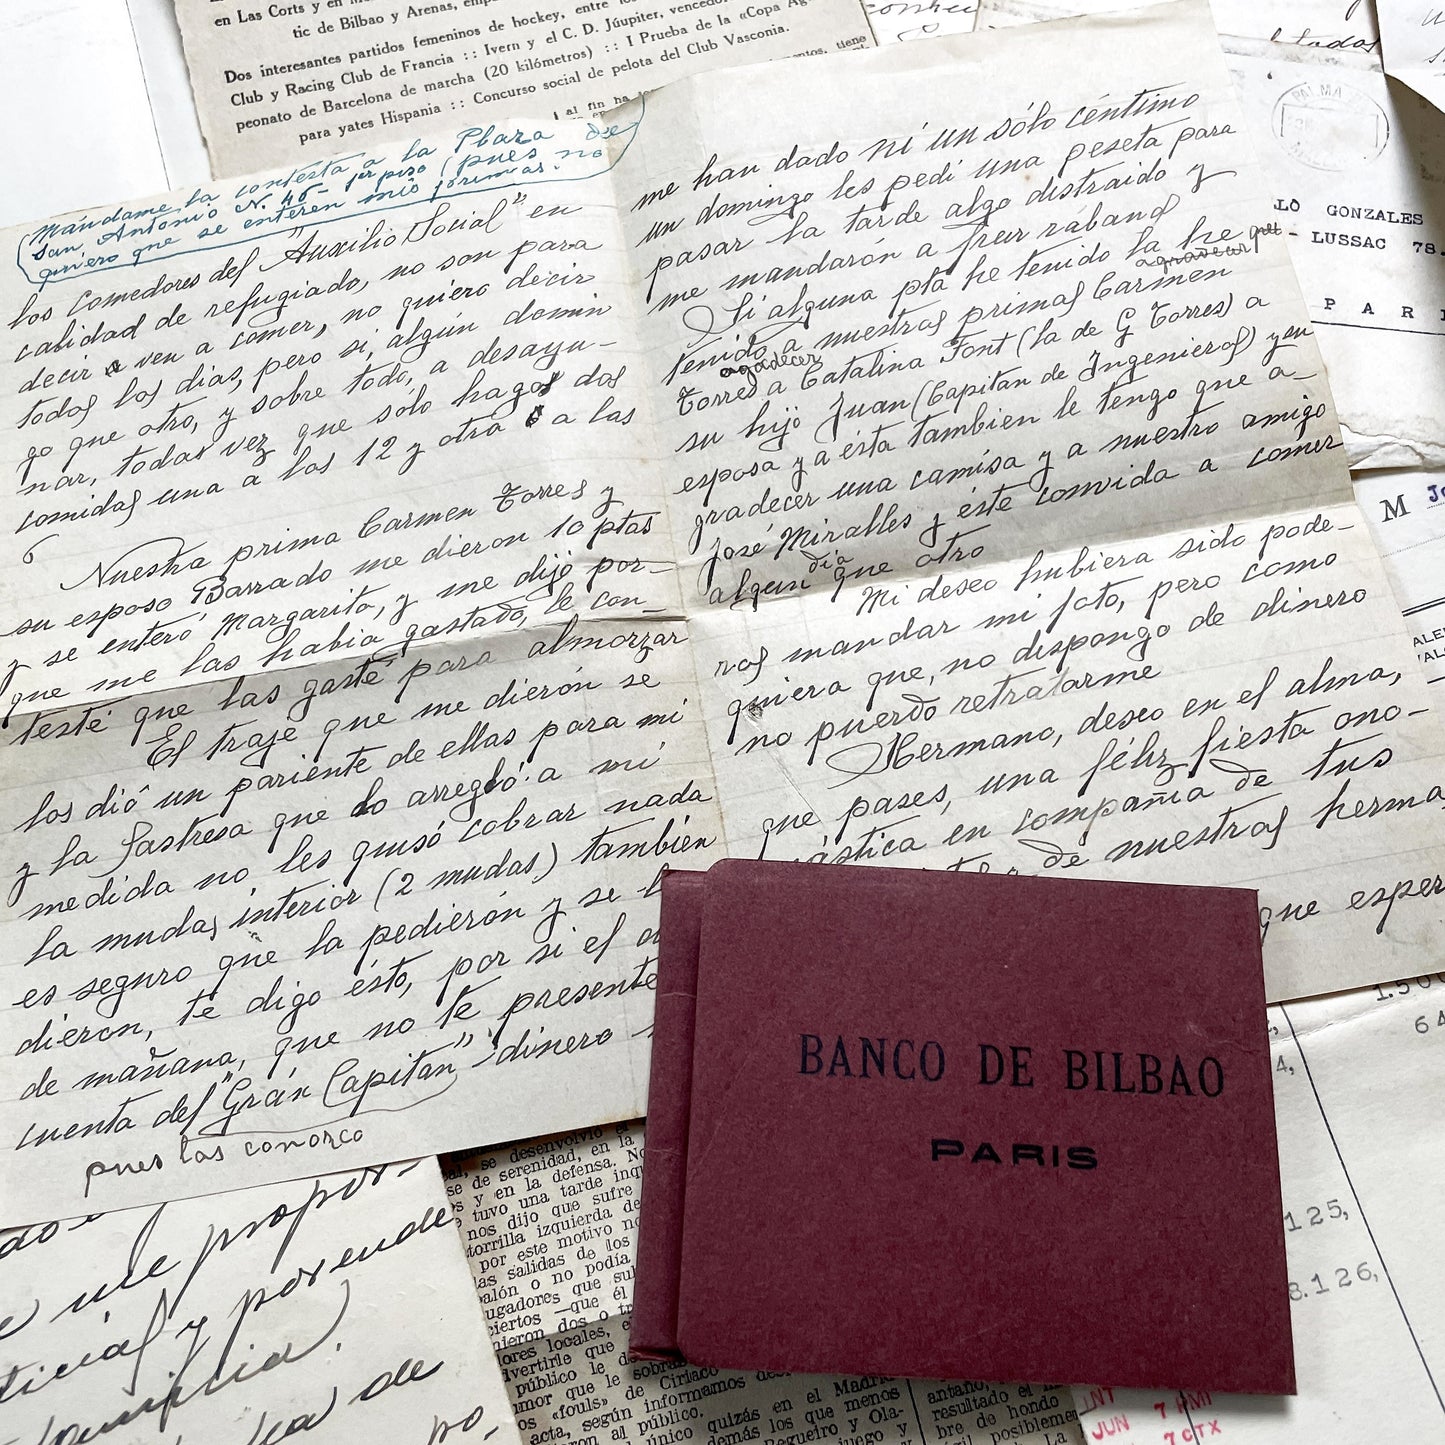 en Las Corts y en
tic de Bilbao y Arenas,
Dos interesantes partidos femeninos de hockey, entre los
Club y Racing Club de Francia :: Ivern y el C. D. Júupiter, vencedor
peonato de Barcelona de marcha (20 kilómetros) :: I Prueba de la «Copa
para yates Hispania :: Concurso social de pelota del Club Vasconia.
al fin ha
tiene
Mándame la contesta a la Plaza de
San Antonio N. 46 - 1er piso (pues no
quiero que se enteren mis primas.
los comedores del "Auxilio Social" en
calidad de refugiado, no son para
decir a ven a comer, no quiero decir
todos los dias, pero si, algún domin
go que otro, y sobre todo, a desayu-
nar, todas vez que sólo hagos dos
comidas una a las 12 y otra a las
6
Nuestra prima Carmen Torres y
su esposo Barrado me dieron 10 ptas
y se enteró Margarita, y me dijó por-
que me las habia gastado, le con-
testé que las gasté para almorzar
El traje que me dierón se
los dió un pariente de ellas para mi
y la Sastresa que lo arregló a mi
medida no les quisó cobrar nada
la mudas interior (2 mudas) también
es seguro que la pedierón y se l
dieron, te digo ésto, por si el
de mañana, que no te presente
cuenta del "Grán Capitán" dinero
pues las conozco
me han dado ni un sólo céntimo
un domingo les pedi una peseta para
pasar la tarde algo distraido y
me mandarón a freir rábanos
Si alguna pta he tenido la he
agradecer que
tenido a nuestras primas Carmen
agradecer
Torres a Catalina Font (la de G Torres) a
su hijo Juan (Capitan de Ingenieros) y su
esposa y a ésta tambien le tengo que a-
gradecer una camisa y a nuestro amigo
José Miralles y éste convida a comer
algun día que otro
Mi deseo hubiera sido pode-
ros mandar mi foto, pero como
quiera que, no dispongo de dinero
no puerdo retratarme
Hermano, deseo en el alma,
que pases, una féliz fiesta ono-
mástica en compañia de tus
de nuestras herma
que esper
PALMA
LÓ GONZALES
- LUSSAC 78.
P A R I
M
BANCO DE BILBAO
PARIS
1.500
64
4,
125,
8.126,
JUN 7
7 CTX
se desenvolvió
se de serenidad, en la
s y en la defensa. No
tuvo una tarde
nos dijo que sufre
torrilla izquierda de
por este motivo no
las salidas de los
balón o no podía
jugadores que
ciertos —que él
nieron dos o
lores locales,
dvertirle que
público le
umor que le
os «fouls» de Ciriaco
acta, según informamos
al público.
único quizás en el Madrid
demás los que menos
Regueiro y Ola-
antaño,
resultado el
bre de hondo
posiblemen
me propor-
y porende
familia.
de